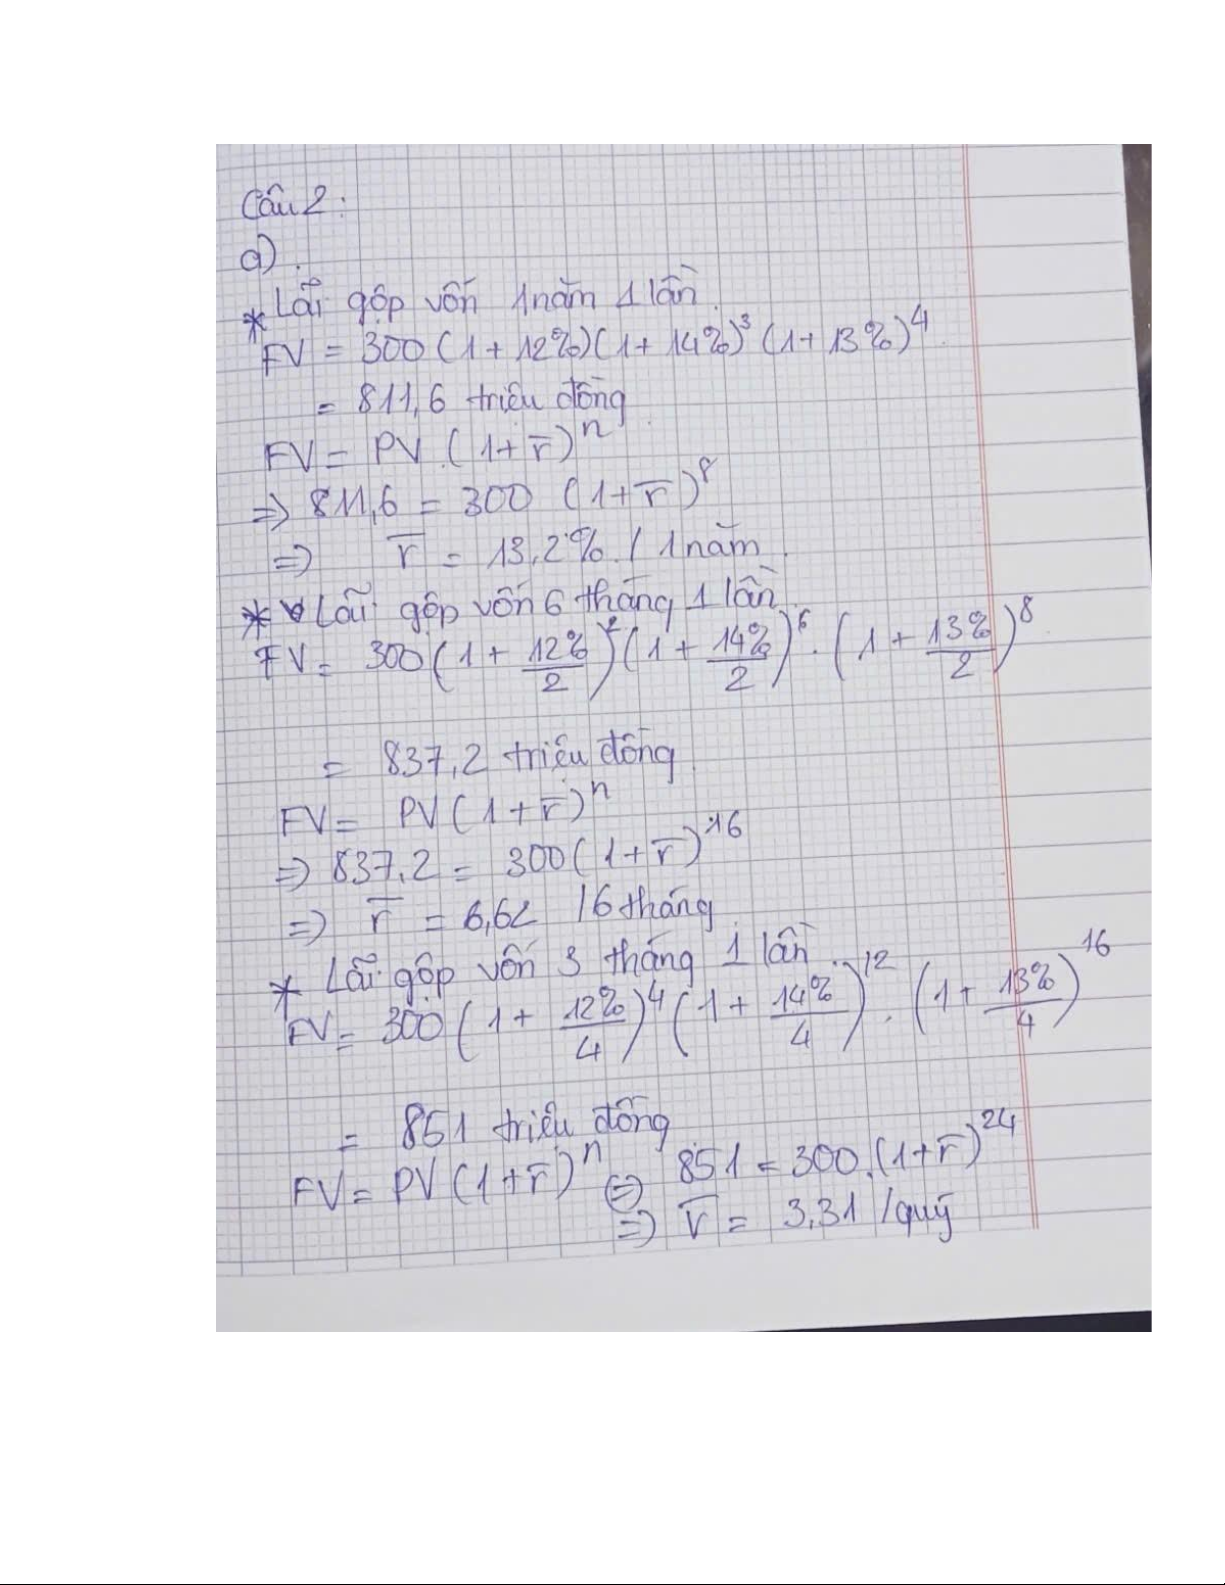 Câu 2:
a).
* Lãi gộp vốn 1 năm 1 lần.
FV = 300 (1 + 12%) (1 + 14%)³ (1 + 13%)⁴.
= 811,6 triệu đồng
FV = PV. (1 + r̅)ⁿ
=> 811,6 = 300 (1 + r̅)⁸
=> r̅ = 13,2% / 1 năm.
* Lãi gộp vốn 6 tháng 1 lần.
FV = 300 (1 + 12%/2)² (1 + 14%/2)⁶ . (1 + 13%/2)⁸
= 837,2 triệu đồng.
FV = PV (1 + r̅)ⁿ
=> 837,2 = 300 (1 + r̅)¹⁶
=> r̅ = 6,62 / 6 tháng.
* Lãi gộp vốn 3 tháng 1 lần.
FV = 300 (1 + 12%/4)⁴ (1 + 14%/4)¹² . (1 + 13%/4)¹⁶
= 851 triệu đồng
FV = PV (1 + r̅)ⁿ <=> 851 = 300. (1 + r̅)²⁴
=> r̅ = 3,31 / quý